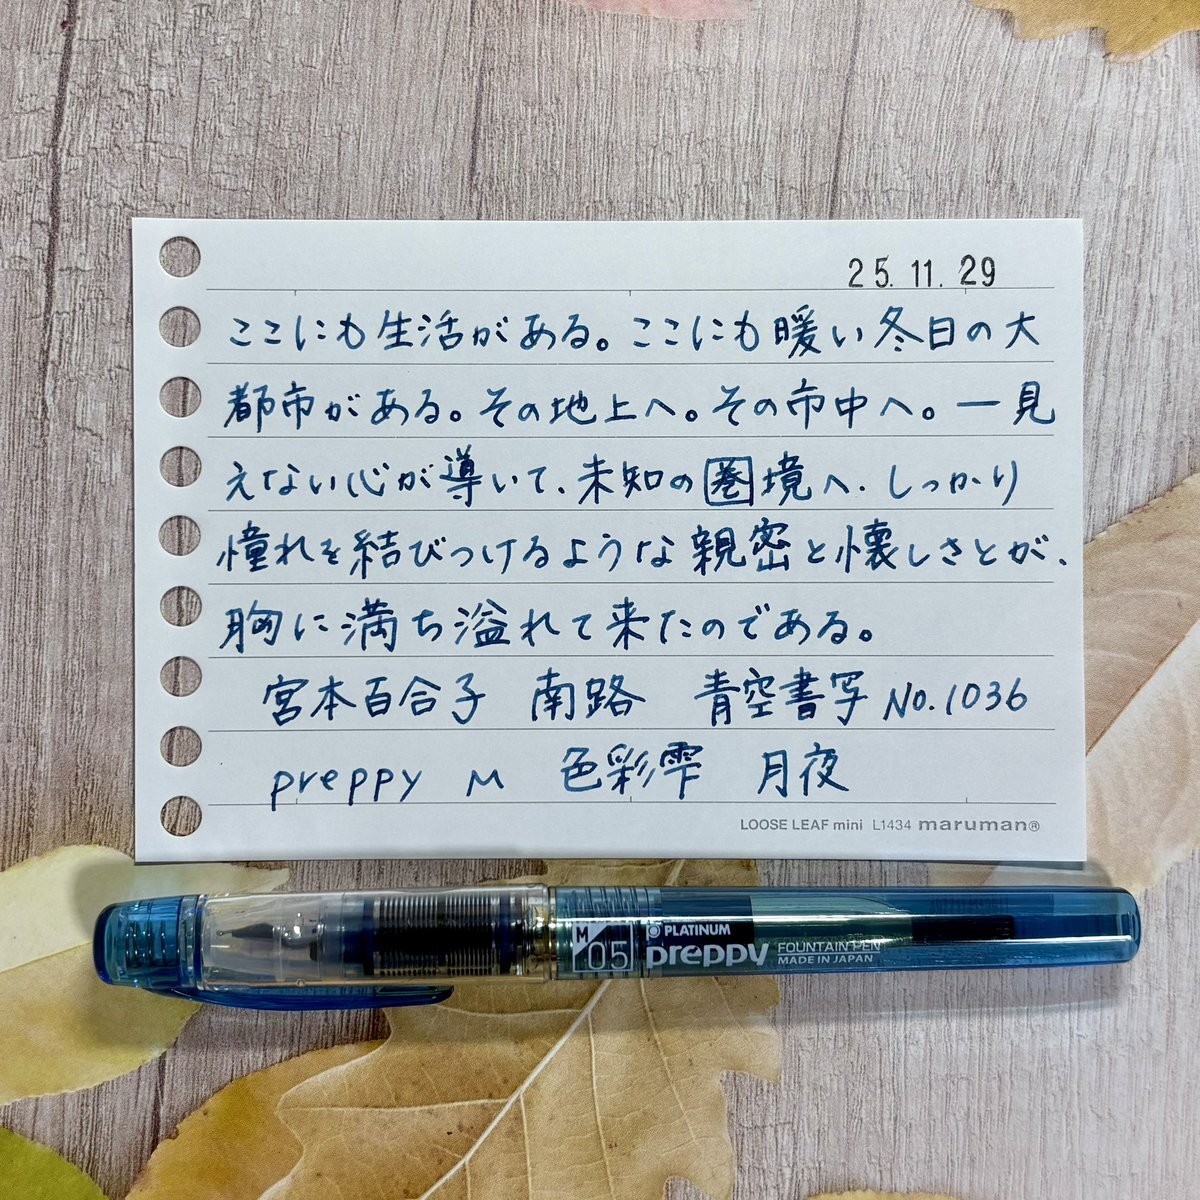 25.11.29
ここにも生活がある。ここにも暖い冬日の大
都市がある。その地上へ。その市中へ。一見
えない心が導いて、未知の圏境へ、しっかり
憧れを結びつけるような親密と懐しさとが、
胸に満ち溢れて来たのである。
宮本百合子 南路 青空書写 No.1036
preppy M 色彩雫 月夜
LOOSE LEAF mini L1434 maruman®
M 05 PLATINUM preppy FOUNTAIN PEN
MADE IN JAPAN